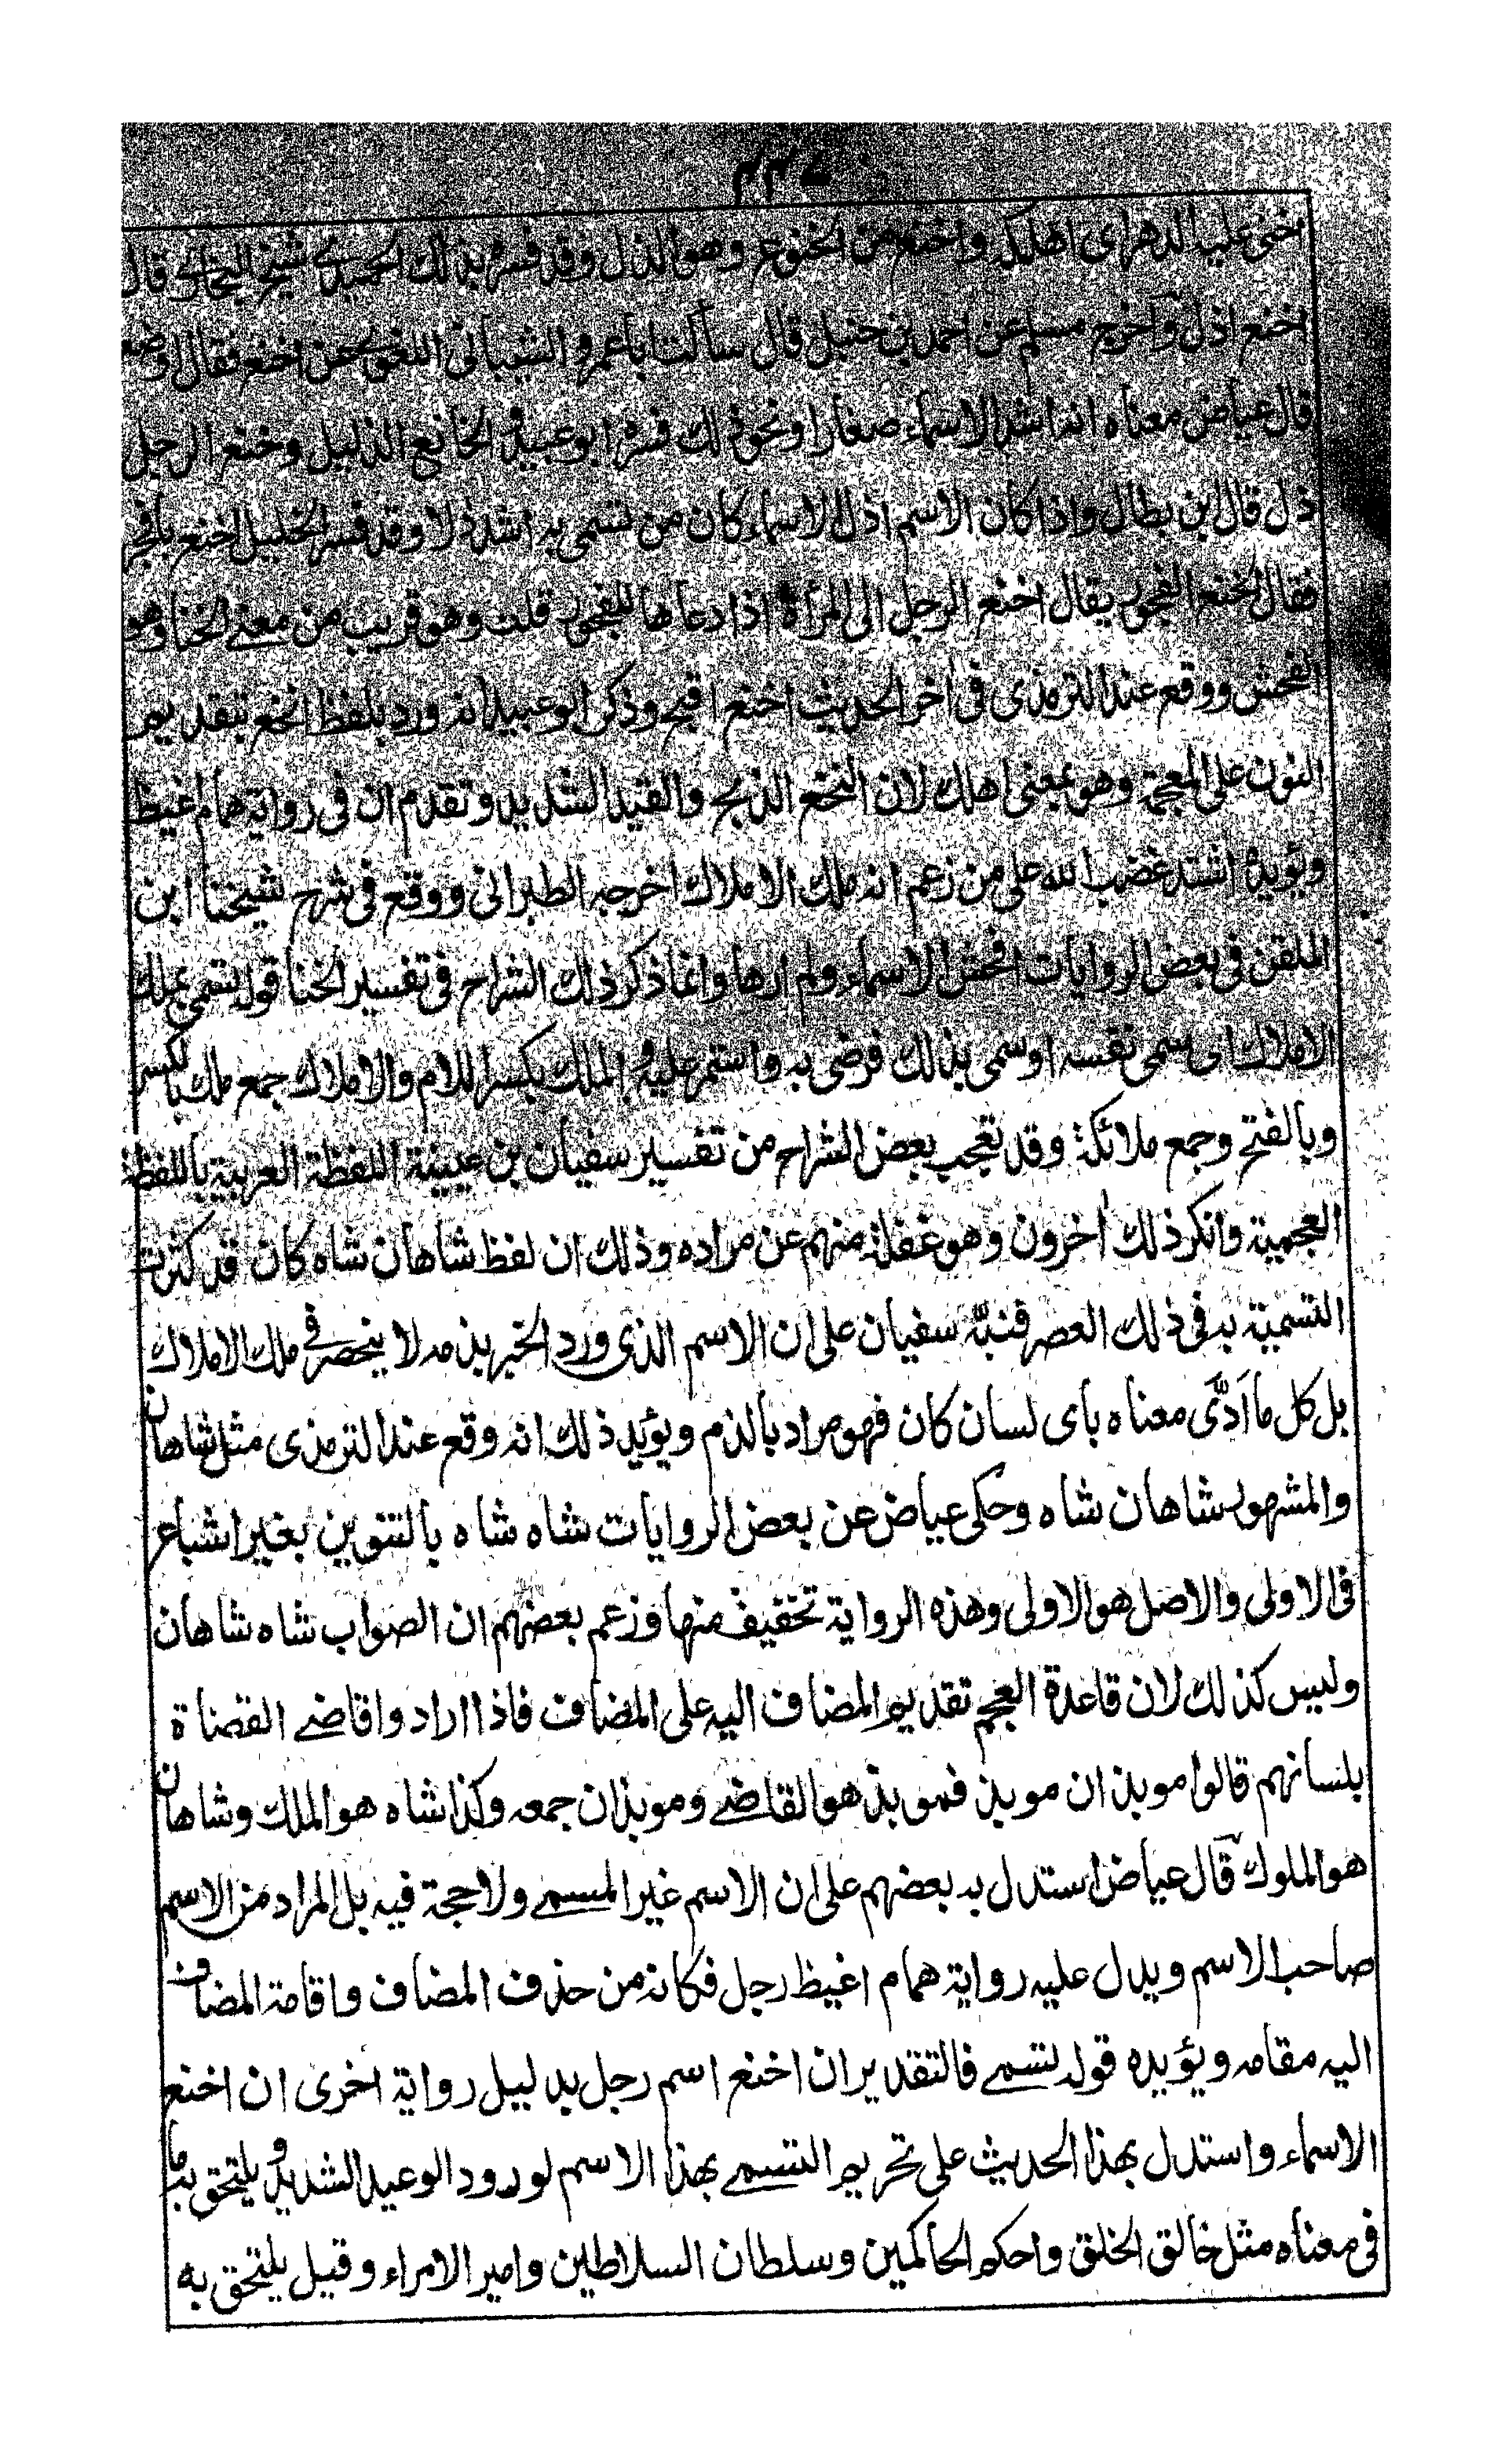 اخنى عليه الدهر اى اهلكه واخنع من الخنوع وهو الذل وقد فسره بذلك الحميدى شيخ البخارى قال
اخنع اذل واخرج مسلم عن احمد بن حنبل قال سألت ابا عمرو الشيبانى اللغوى عن اخنع فقال اوضع
قال عياض معناه انه اشد الاسماء صغارا ونحو ذلك فسره ابو عبيد والخانع الذليل وخنع الرجل
ذل قال ابن بطال واذا كان الاسم اذل الاسماء كان من تسمى به اشد ذلا وقد فسر الخليل اخنع بافجر
فقال الخنع الفجور يقال اخنع الرجل الى المرأة اذا دعاها للفجور قلت وهو قريب من معنى الخنا وهو
الفحش ووقع عند الترمذى فى اخر الحديث اخنع اقبح وذكر ابو عبيد انه ورد بلفظ انخع بتقديم
النون على المعجمة وهو بمعنى اهلك لان النخع الذبح والقتل الشديد وتقدم ان فى رواية همام اغيظ
ويؤيده اشتد غضب الله على من زعم انه ملك الاملاك اخرجه الطبرانى ووقع فى شرح شيخنا ابن
الملقن فى بعض الروايات افحش الاسماء ولم ارها وانما ذكر ذلك الشراح فى تفسير الخنا قوله تسمى بملك
الاملاك اى سمى نفسه او سمى بذلك فرضى به واستمر عليه والملك بكسر اللام والاملاك جمع ملك بالكسر
وبالفتح وجمع ملائكة وقد تعجب بعض الشراح من تفسير سفيان بن عيينة اللفظة العربية باللفظة
العجمية وانكر ذلك اخرون وهو غفلة منهم عن مراده وذلك ان لفظ شاهان شاه كان قد كثرت
التسمية به فى ذلك العصر فنبّه سفيان على ان الاسم الذى ورد الخبر بذمه لا ينحصر فى ملك الاملاك
بل كل ما اَدَّى معناه باى لسان كان فهو مراد بالذم ويؤيد ذلك انه وقع عند الترمذى مثل شاهان
والمشهور شاهان شاه وحكى عياض عن بعض الروايات شاه شاه بالتنوين بغير اشباع
فى الاولى والاصل هو الاولى وهذه الرواية تخفيف منها وزعم بعضهم ان الصواب شاه شاهان
وليس كذلك لان قاعدة العجم تقديم المضاف اليه على المضاف فاذا ارادوا قاضى القضاة
بلسانهم قالوا موبذان موبذ فموبذ هو القاضى وموبذان جمعه وكذا شاه هو الملك وشاهان
هو الملوك قال عياض استدل به بعضهم على ان الاسم غير المسمى ولا حجة فيه بل المراد من الاسم
صاحب الاسم ويدل عليه رواية همام اغيظ رجل فكانه من حذف المضاف واقامة المضاف
اليه مقامه ويؤيده قوله تسمى فالتقدير ان اخنع اسم رجل بدليل رواية اخرى ان اخنع
الاسماء واستدل بهذا الحديث على تحريم التسمى بهذا الاسم لورود الوعيد الشديد ويلتحق به ما
فى معناه مثل خالق الخلق واحكم الحاكمين وسلطان السلاطين وامير الامراء وقيل يلتحق به